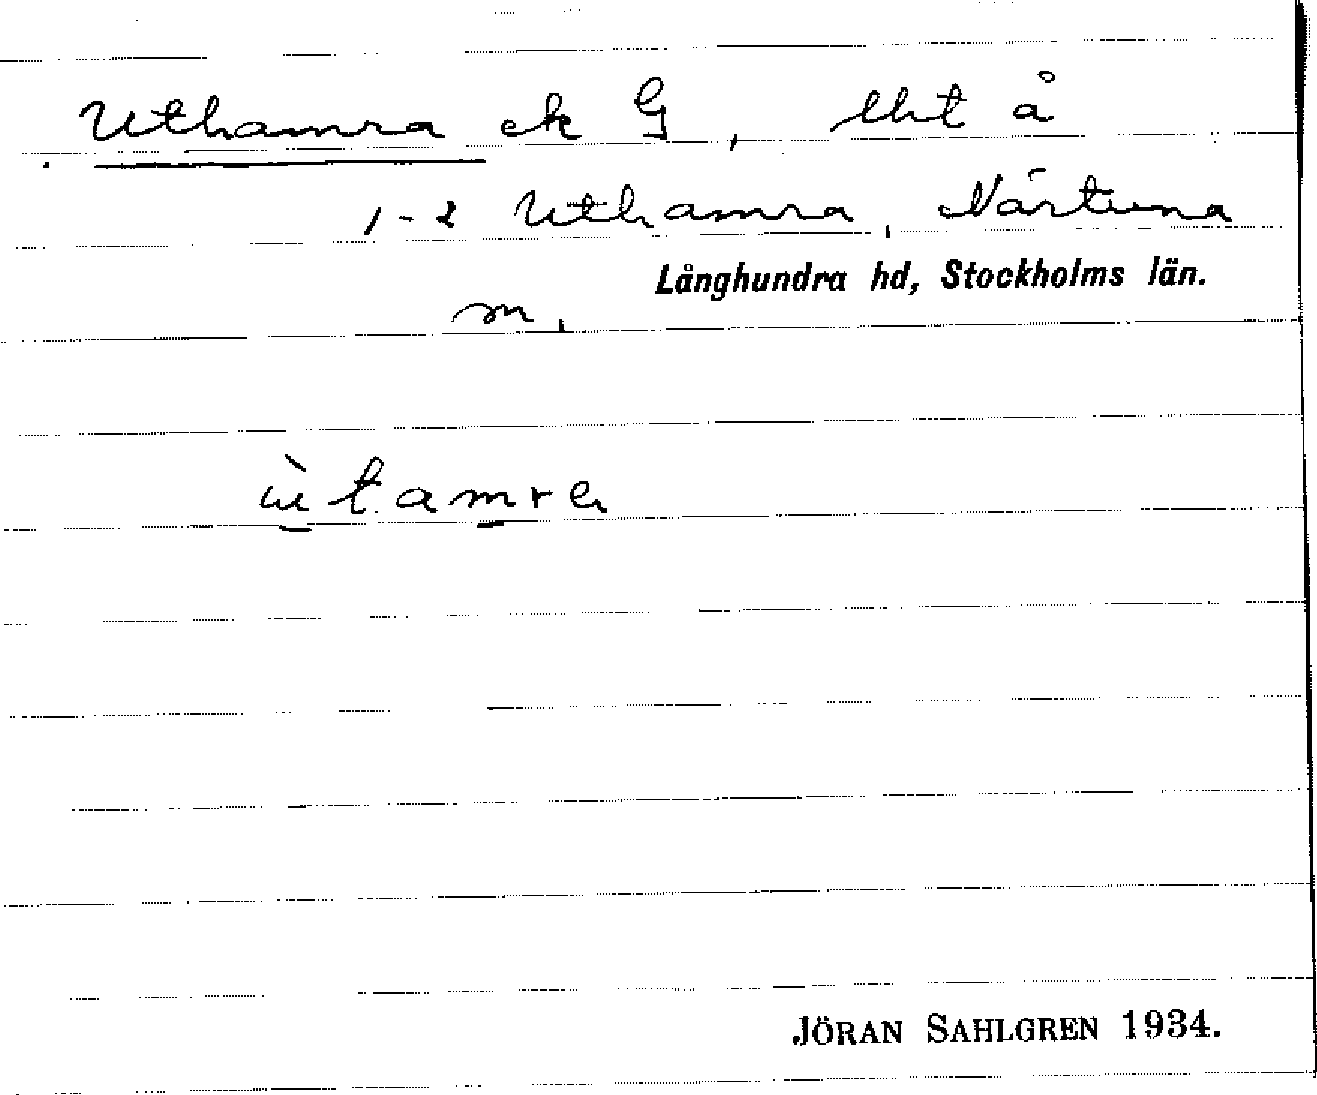 Uthamra ek G, lht å
1-2 Uthamra, Närtuna
Långhundra hd, Stockholms län.
m,
ùtamra
JÖRAN SAHLGREN 1934.